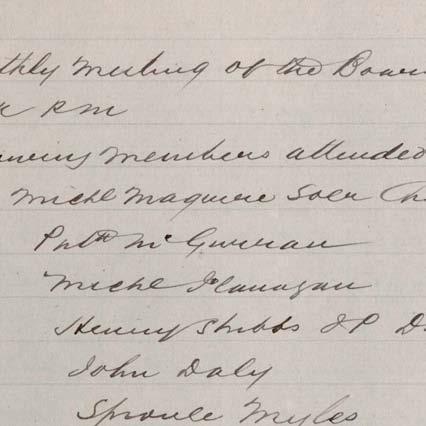 thly Meeting of the Boar
PM
owing Members attended
Michl Maguire Solr Ch
Patk McGurran
Michl Flanagan
Henry Stubbs JP D.
John Daly
Sproule Myles